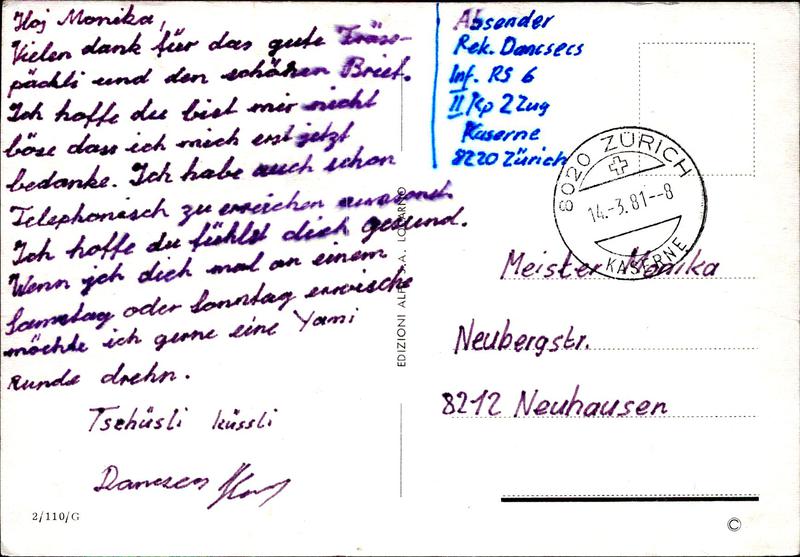 Hoj Monika,
Vielen dank für das gute Fräss-
päckli und den schönen Brief.
Ich hoffe du bist mir nicht
böse dass ich mich erst jetzt
bedanke. Ich habe auch schon
Telephonisch zu erreichen
Ich hoffe du fühlst dich gesund.
Wenn ich dich mal an einem
Samstag oder Sonntag erwische
möchte ich gerne eine Yami
runde drehn.
Tschüsli küssli
Dancsecs
2/110/G
EDIZIONI ALFA S.A., LOCARNO
Absender
Rek. Dancsecs
Inf. RS 6
II Kp 2 Zug
Kaserne
8220 Zürich
8020 ZÜRICH
14.-3.81--8
KASERNE
Meister Monika
Neubergstr.
8212 Neuhausen
©